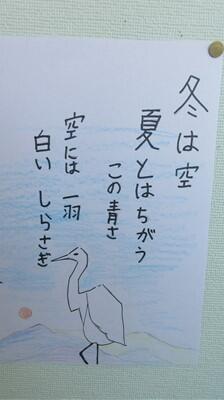 冬は空
夏とはちがう
この青さ
空には一羽
白いしらさぎ